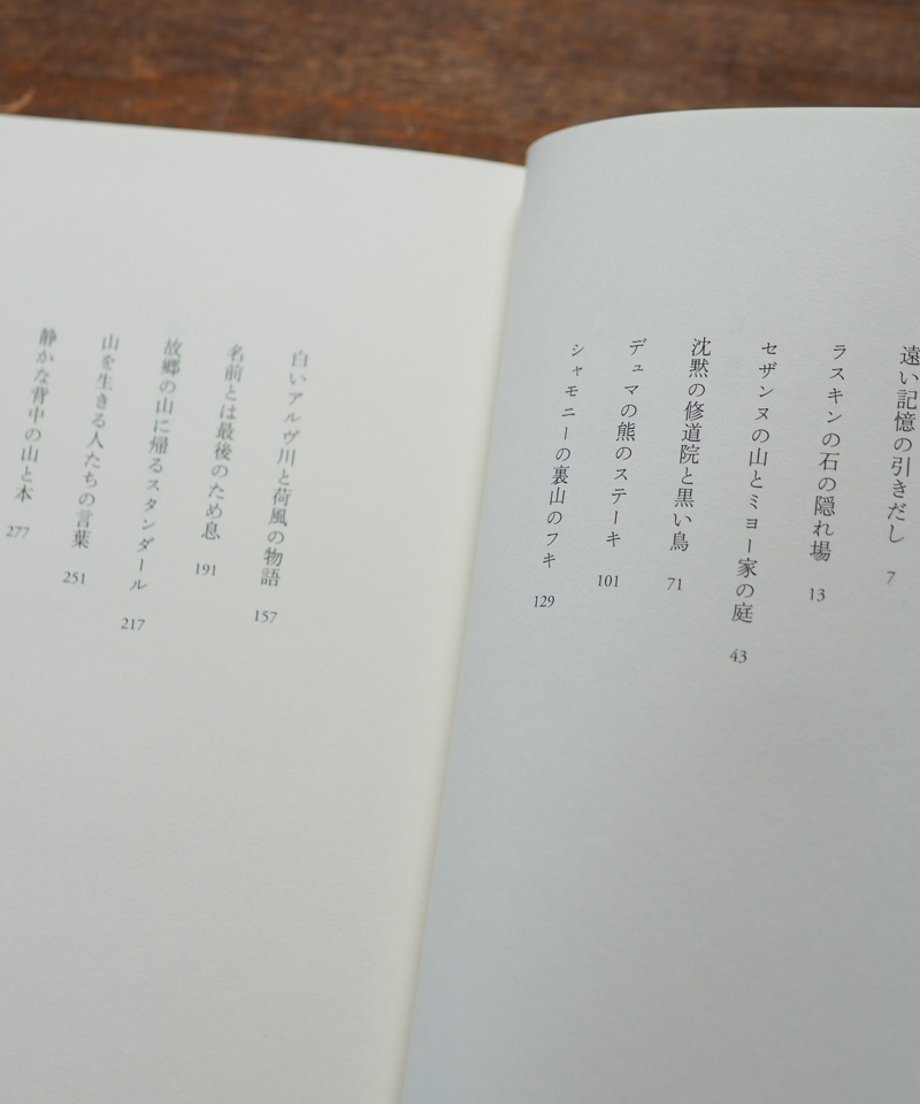 遠い記憶の引きだし 7
ラスキンの石の隠れ場 13
セザンヌの山とミヨー家の庭 43
沈黙の修道院と黒い鳥 71
デュマの熊のステーキ 101
シャモニーの裏山のフキ 129
白いアルヴ川と荷風の物語 157
名前とは最後のため息 191
故郷の山に帰るスタンダール 217
山を生きる人たちの言葉 251
静かな背中の山と本 277